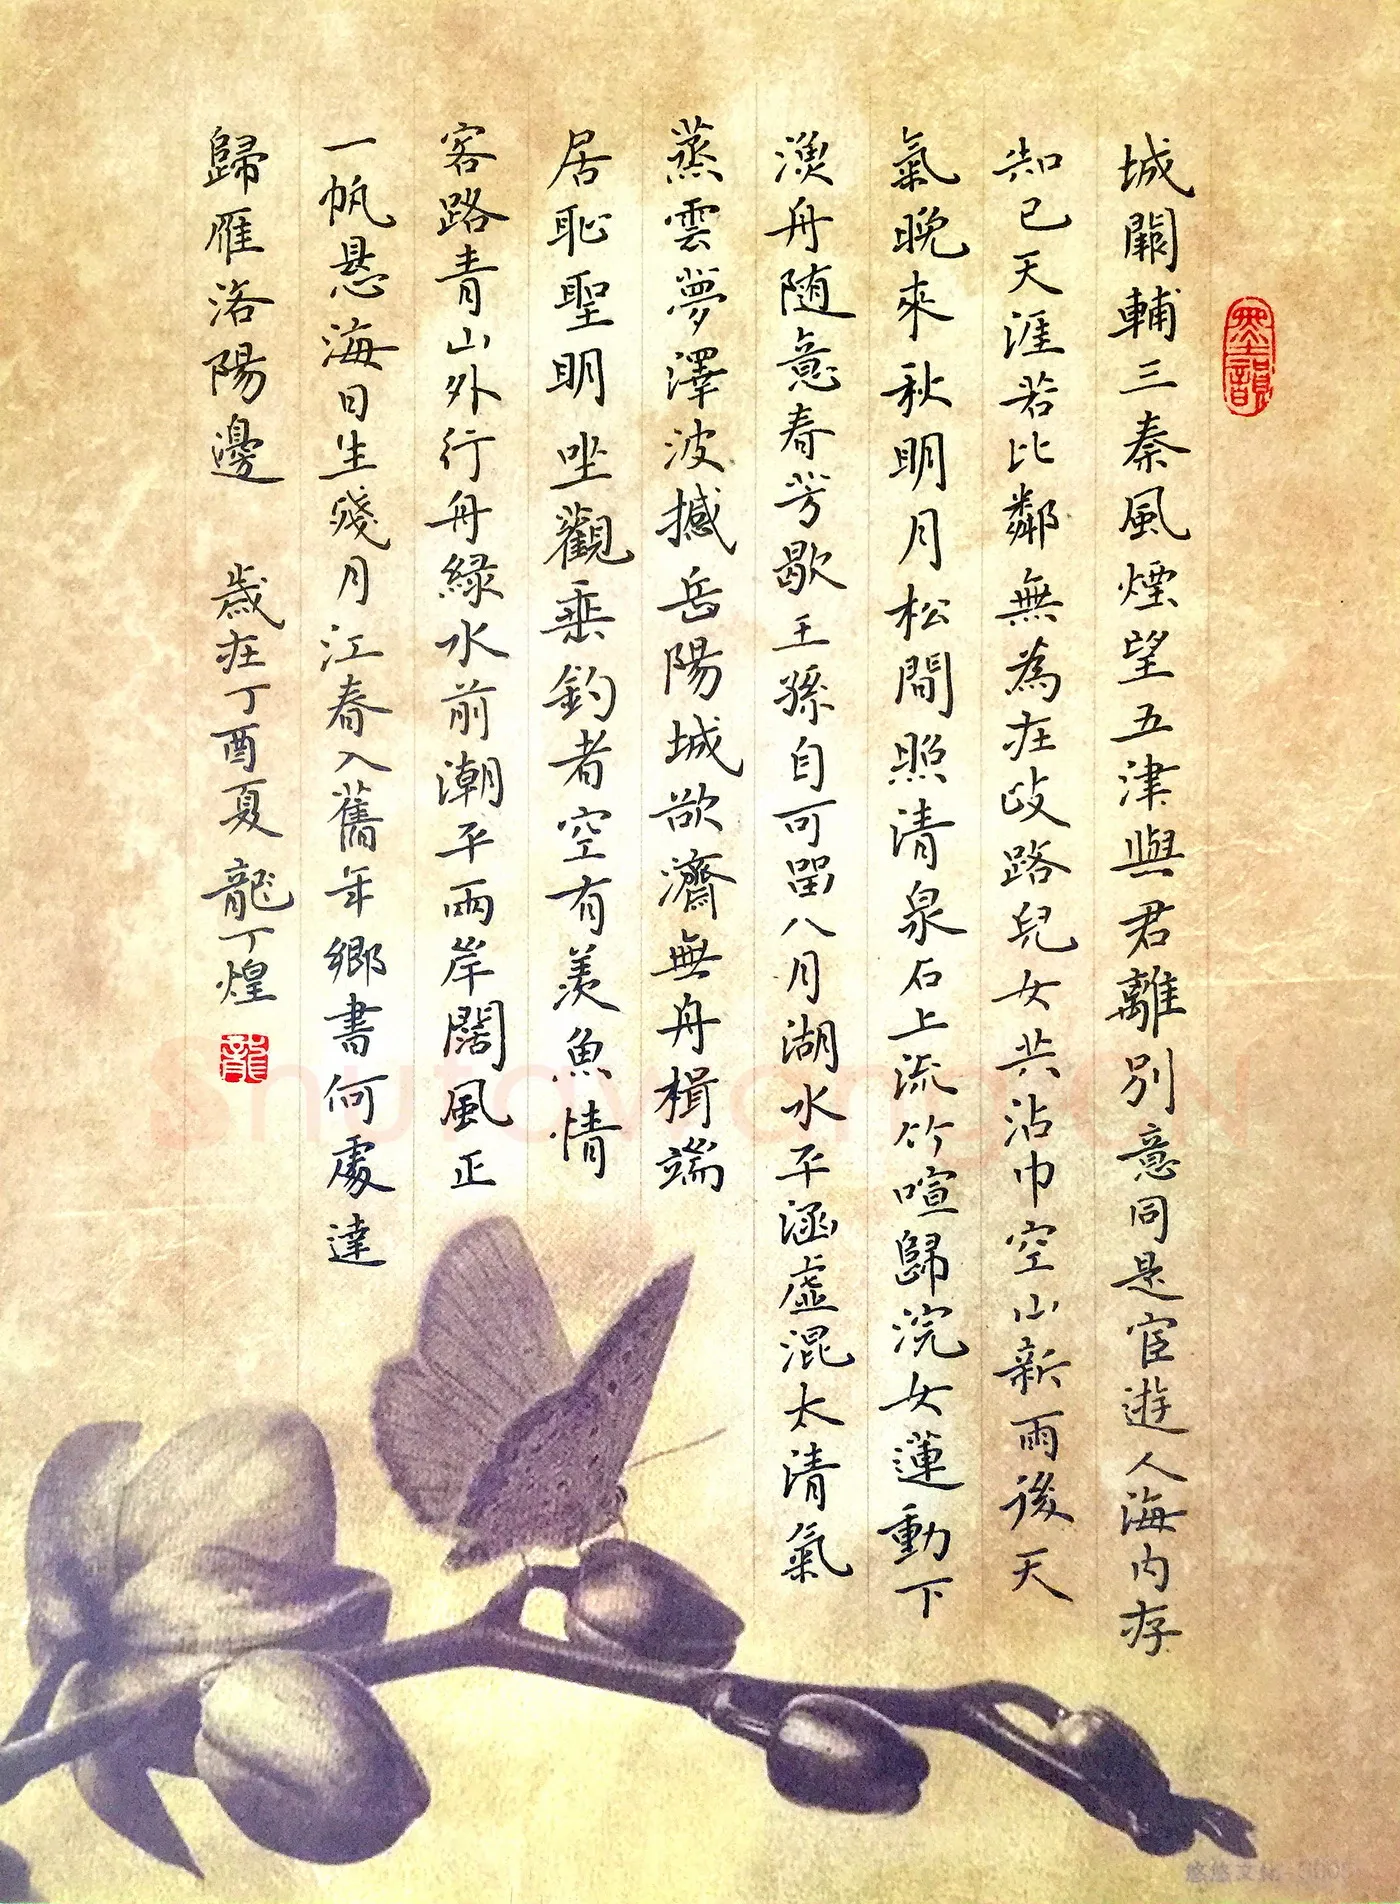 墨韻
城闕輔三秦風煙望五津與君離別意同是宦遊人海内存
知己天涯若比鄰無為在歧路兒女共沾巾空山新雨後天
氣晚來秋明月松間照清泉石上流竹喧歸浣女蓮動下
漁舟随意春芳歇王孫自可留八月湖水平涵虛混太清氣
蒸雲夢澤波撼岳陽城欲濟無舟楫端
居恥聖明坐觀垂釣者空有羨魚情
客路青山外行舟緑水前潮平兩岸闊風正
一帆悬海日生殘月江春入舊年鄉書何處達
歸雁洛陽邊 歲在丁酉夏龍丁煌
龍
ShufawangCN